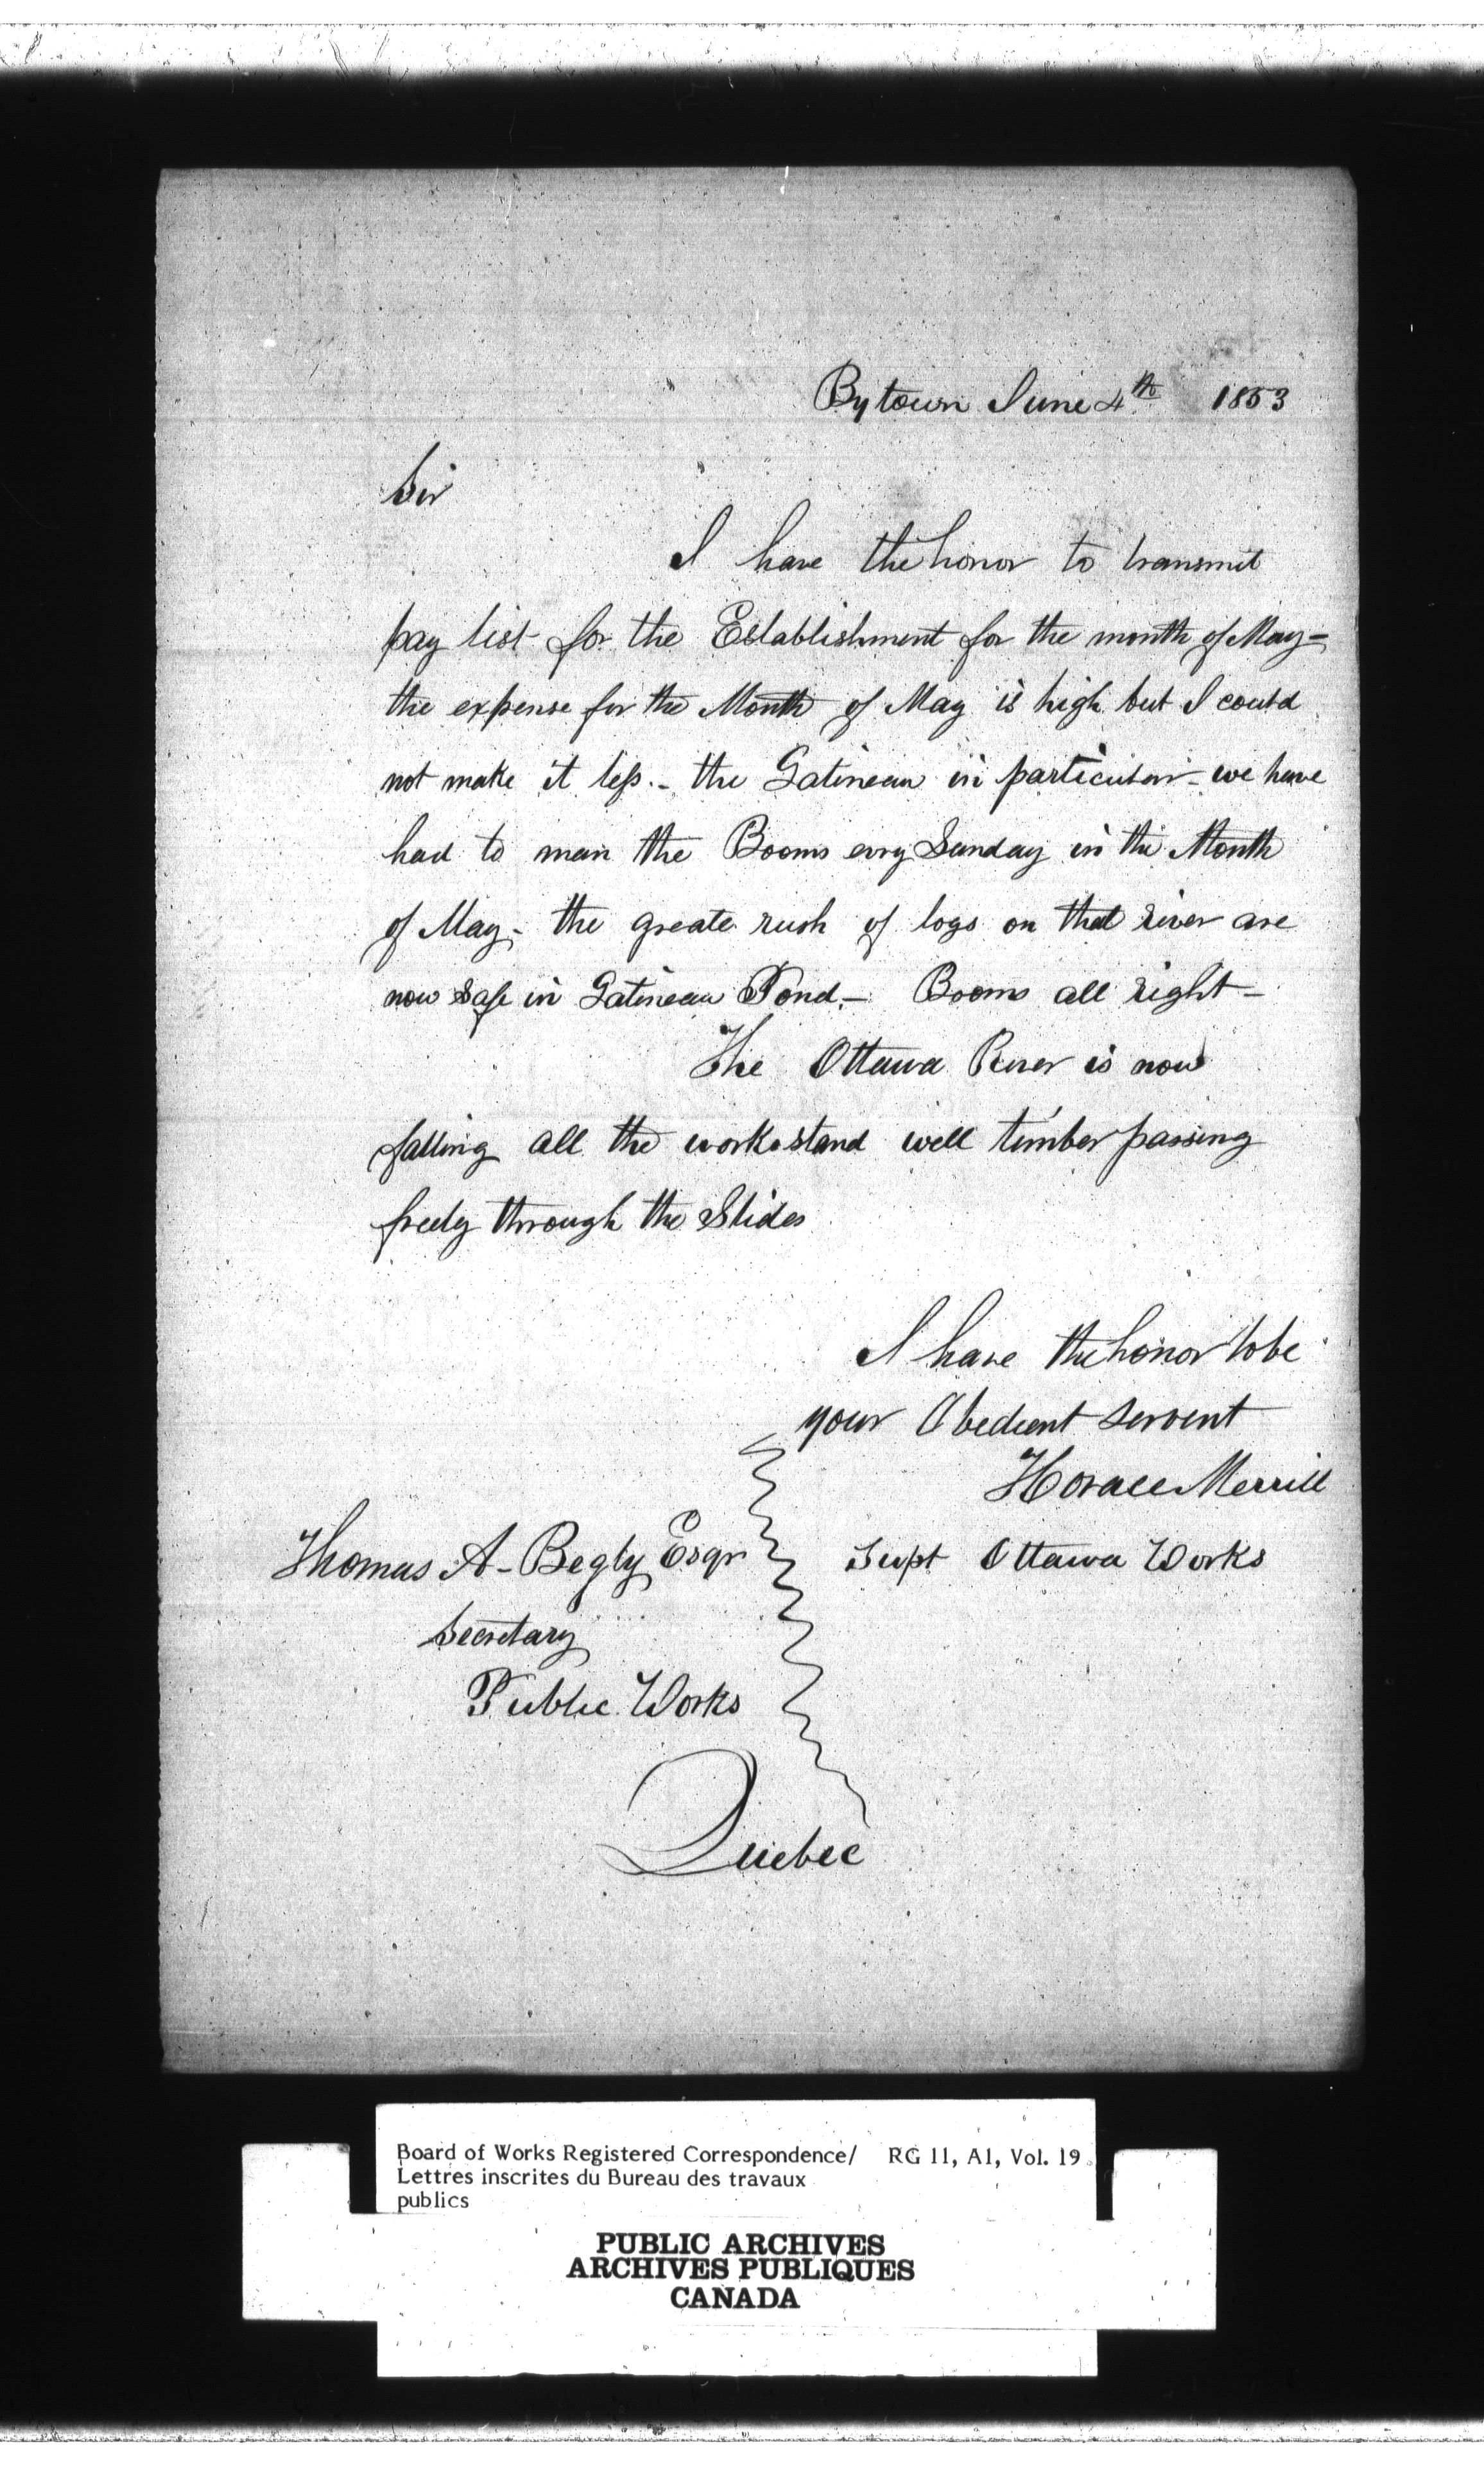 Bytown June 4th 1853
Sir
I have the honor to transmit
pay list for the Establishment for the month of May -
the expense for the Month of May is high but I could
not make it less. - the Gatineau in particular - we have
had to man the Booms evry Sunday in the Month
of May - the greate rush of logs on that river are
now safe in Gatineau Pond. - Booms all right -
The Ottawa River is now
falling all the works stand well timber passing
freely through the Slides
I have the honor to be
your Obedient Servent
Horace Merrill
Supt Ottawa Works
Thomas A - Begly Esqr
Secretary
Public Works
Quebec
Board of Works Registered Correspondence/ RG 11, A1, Vol. 19
Lettres inscrites du Bureau des travaux
publics
PUBLIC ARCHIVES
ARCHIVES PUBLIQUES
CANADA